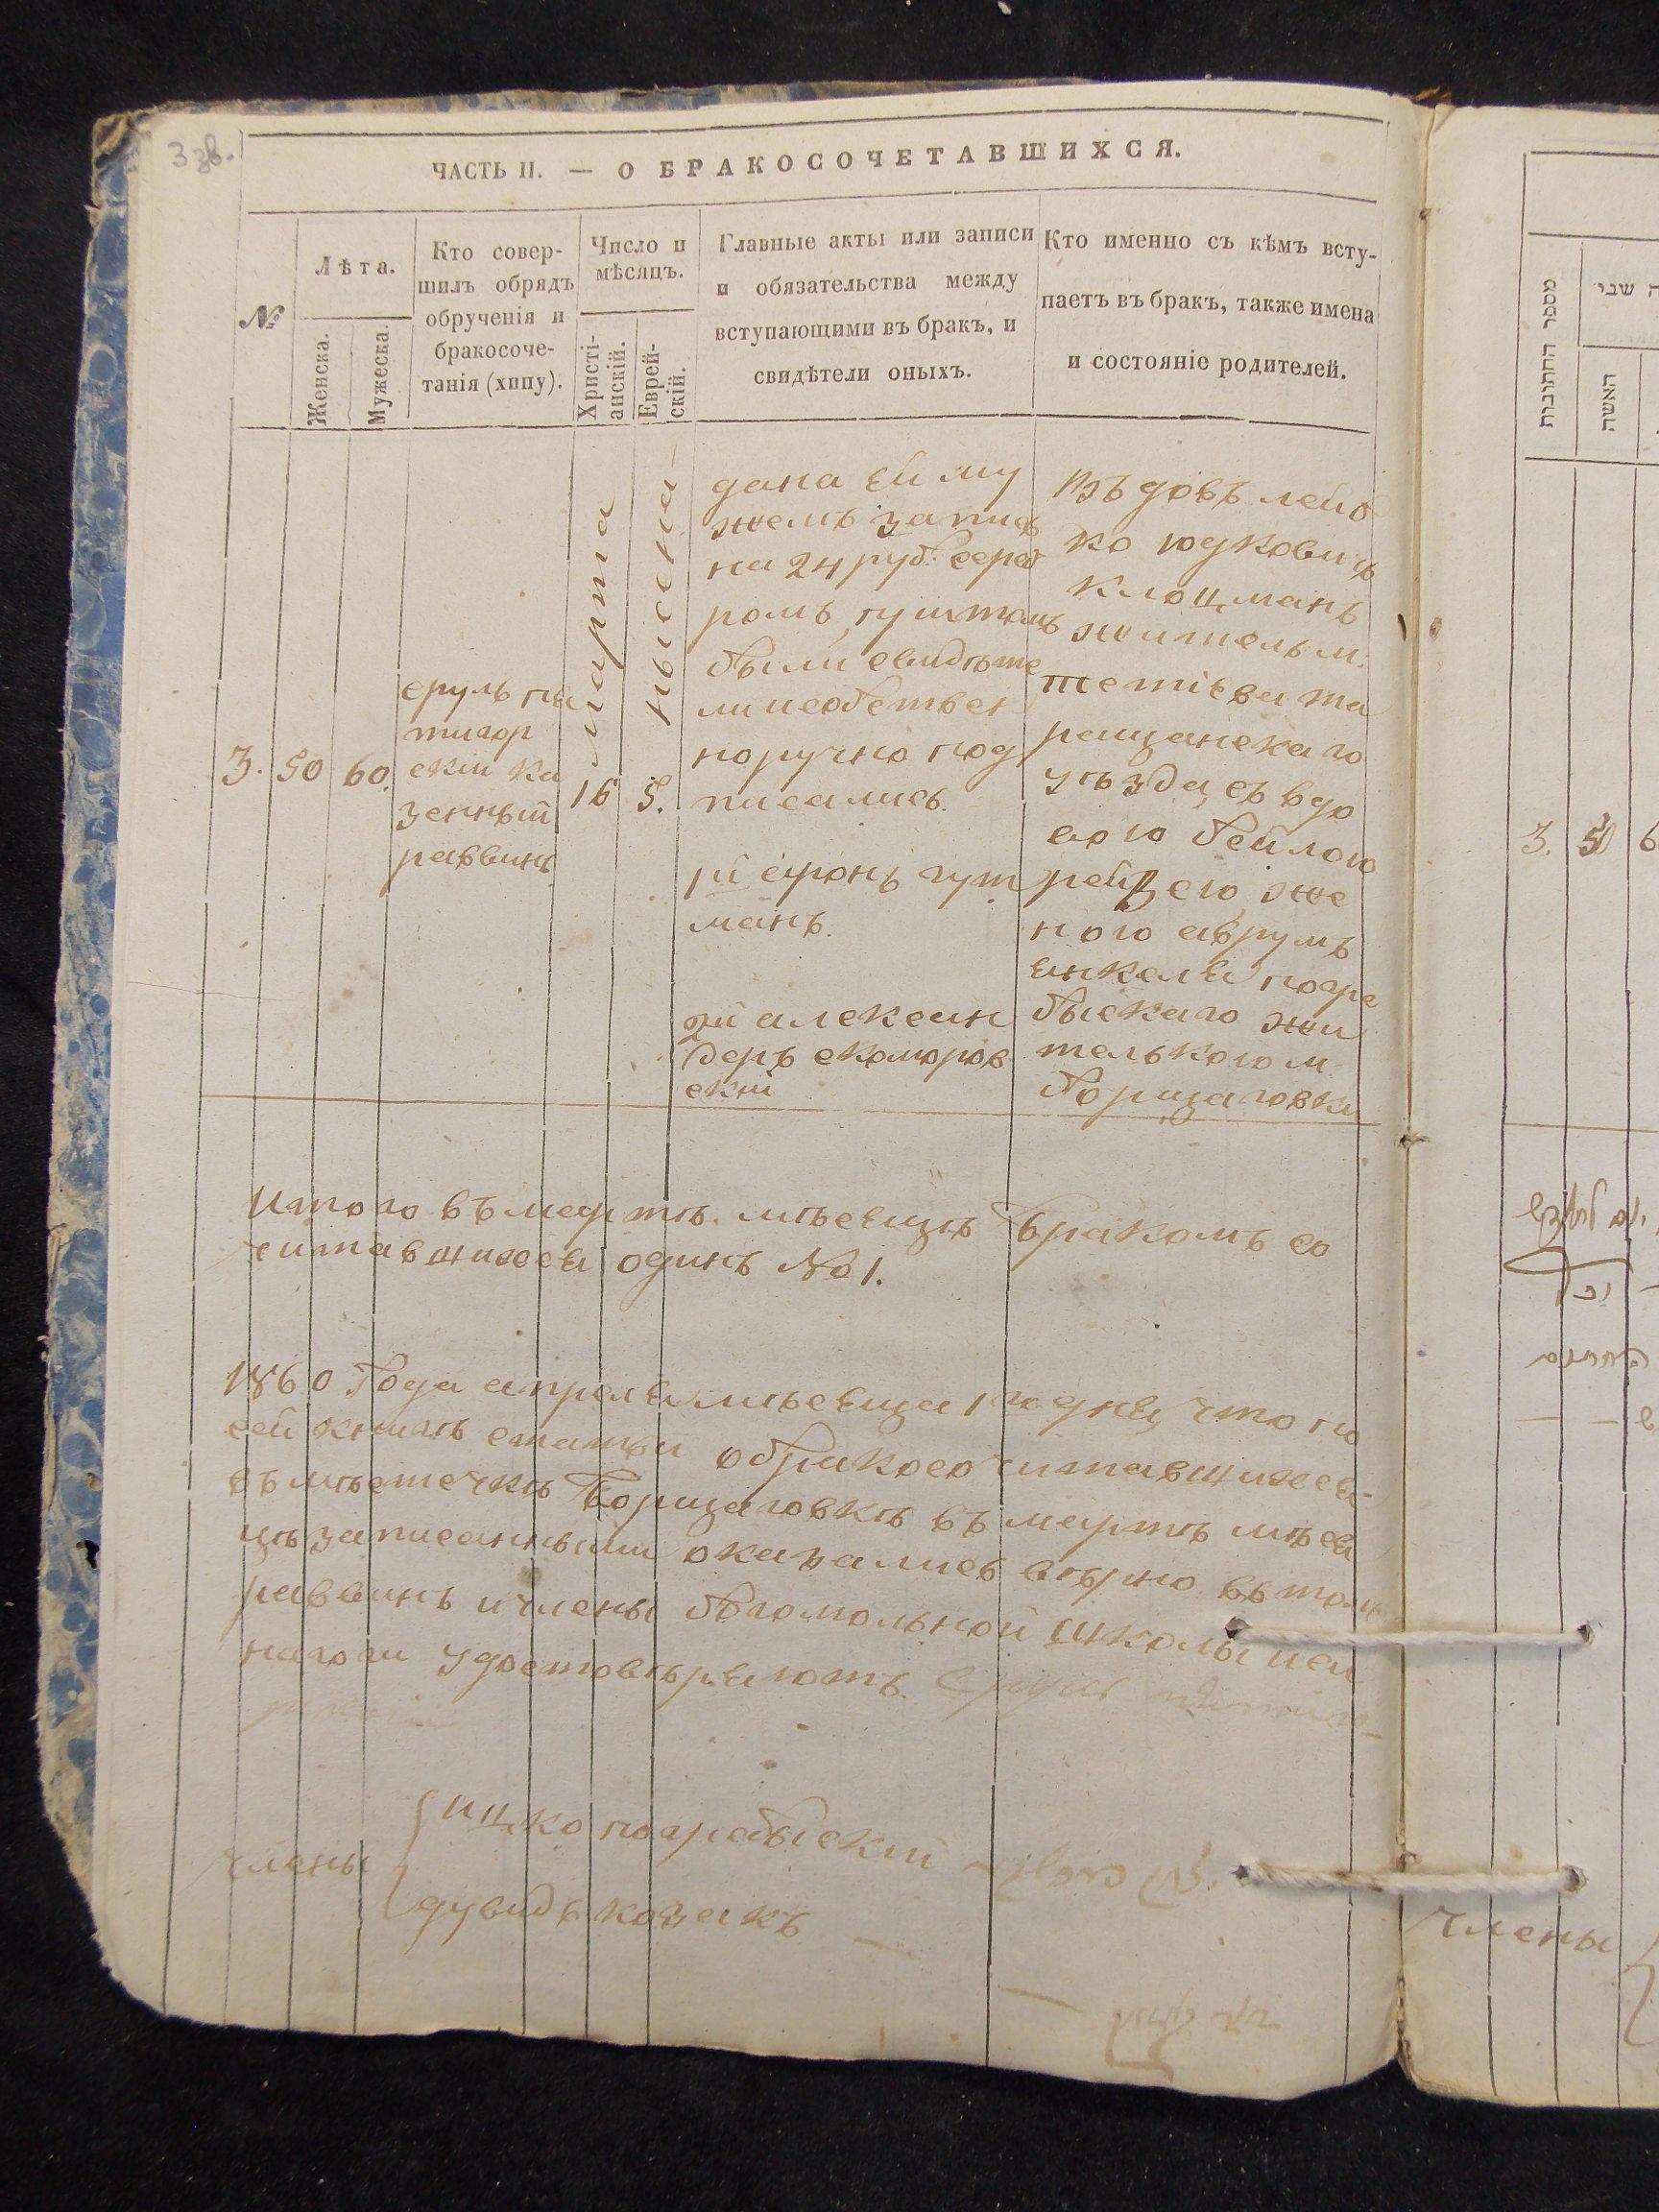 3 зв.
ЧАСТЬ II. — О БРАКОСОЧЕТАВШИХСЯ.
№
Лѣта.
Женска.
Мужеска.
Кто совер-
шилъ обрядъ
обрученія и
бракосоче-
танія (хипу).
Число и
мѣсяцъ.
Христі-
анскій.
Еврей-
скій.
Главные акты или записи
и обязательства между
вступающими въ бракъ, и
свидѣтели оныхъ.
Кто именно съ кѣмъ всту-
паетъ въ бракъ, также имена
и состояніе родителей.
3.
50
60.
сруль пя
тигор
скій ка
зенный
раввинъ
марта
16
ныссена
5.
дана ей му
жемъ запись
на 24 руб. сереб
ромъ, при томъ
были свидѣте
ли и собствен
норучно под
писались.
1й сронь гут
манъ.
2й алексан
деръ скоморов
скій
вдовъ лейб
ко юдковичъ
клоцманъ
житель м.
тетіева та
ращанскаго
уѣзда, съ вдо
вою бейлою
аврумъ
янкеля погре
быскаго жи
телькою м
борщаговки
Итого въ мартѣ мѣсяцѣ бракомъ со
читавшихся одинъ № 1.
1860 года апреля мѣсяца 1го дня, что по
сей книгѣ статьи о бракосочитавшихся
въ мѣстечкѣ Борщаговкѣ въ мартѣ мѣся
цѣ записанными оказались вѣрно въ томъ
раввинъ и члены богомольной школы
удостовѣряютъ.
члены
ицко погребыскій
дувидъ козакъ —
מספר החתונות
האשה
שני
3.
50
6
члены